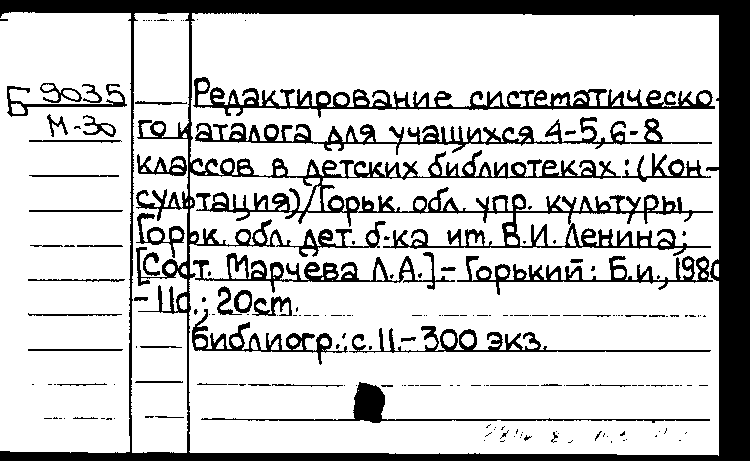 Б 9035
М-30
Редактирование систематическо-
го каталога для учащихся 4-5, 6-8
классов в детских библиотеках: (Кон-
сультация)/Горьк. обл. упр. культуры,
Горьк. обл. дет. б-ка им. В.И. Ленина;
[Сост. Марчева Л.А.]- Горький: Б.и., 1980
- 11с.; 20см.
Библиогр.: с.11.- 300 экз.